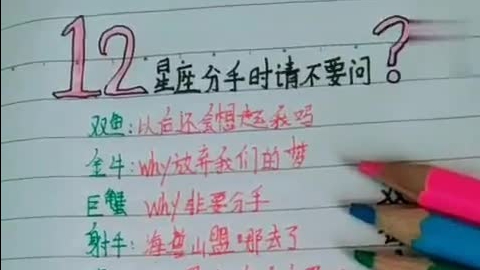 12星座分手时请不要问?
双鱼:以后还会想起我吗
金牛:why放弃我们的梦
巨蟹 why非要分手
射手:海誓山盟哪去了